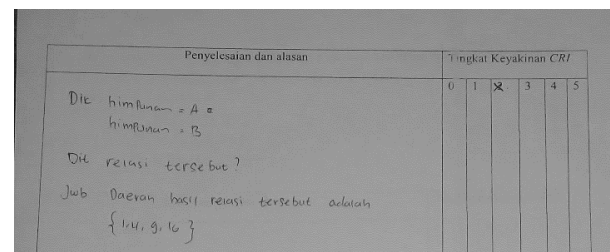 Penyelesaian dan alasan
Tingkat Keyakinan CRI
0 1 2 3 4 5
Dit himpunan = A
himpunan = B
Dit relasi tersebut ?
Jwb Daerah hasil relasi tersebut adalah
{ 1.4, 9, 16 }